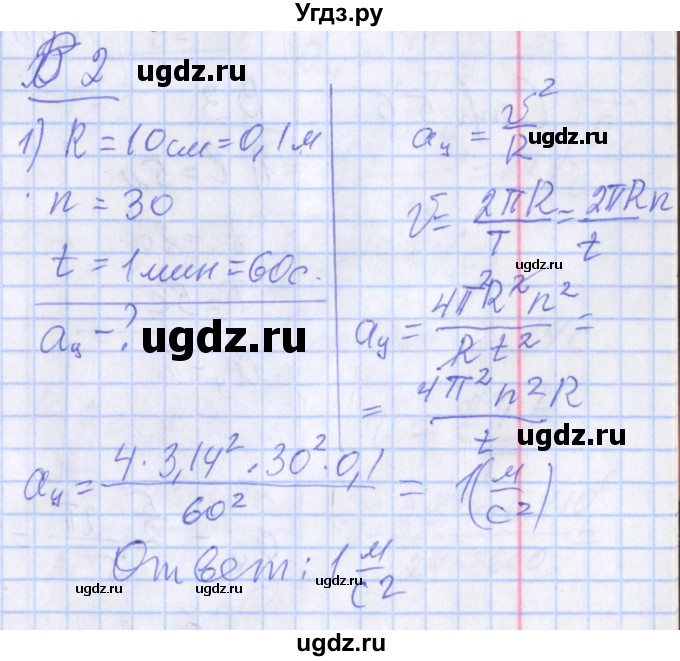 Угдз.ру
В 2
ugdz.ru
1) R = 10см = 0,1м
n = 30
t = 1мин = 60с.
aц - ?
ugdz.ru
aц = v²/R
ugdz.ru
v = 2πR/T = 2πRn/t
ugdz.ru
aц = 4π²R²n²/Rt² =
= 4π²n²R/t
ugdz.ru
aц = 4·3,14²·30²·0,1/60² = 1(м/с²)
ugdz.ru
Ответ: 1 м/с²
ugdz.ru
ugdz.ru
ugdz.ru
ugdz.ru